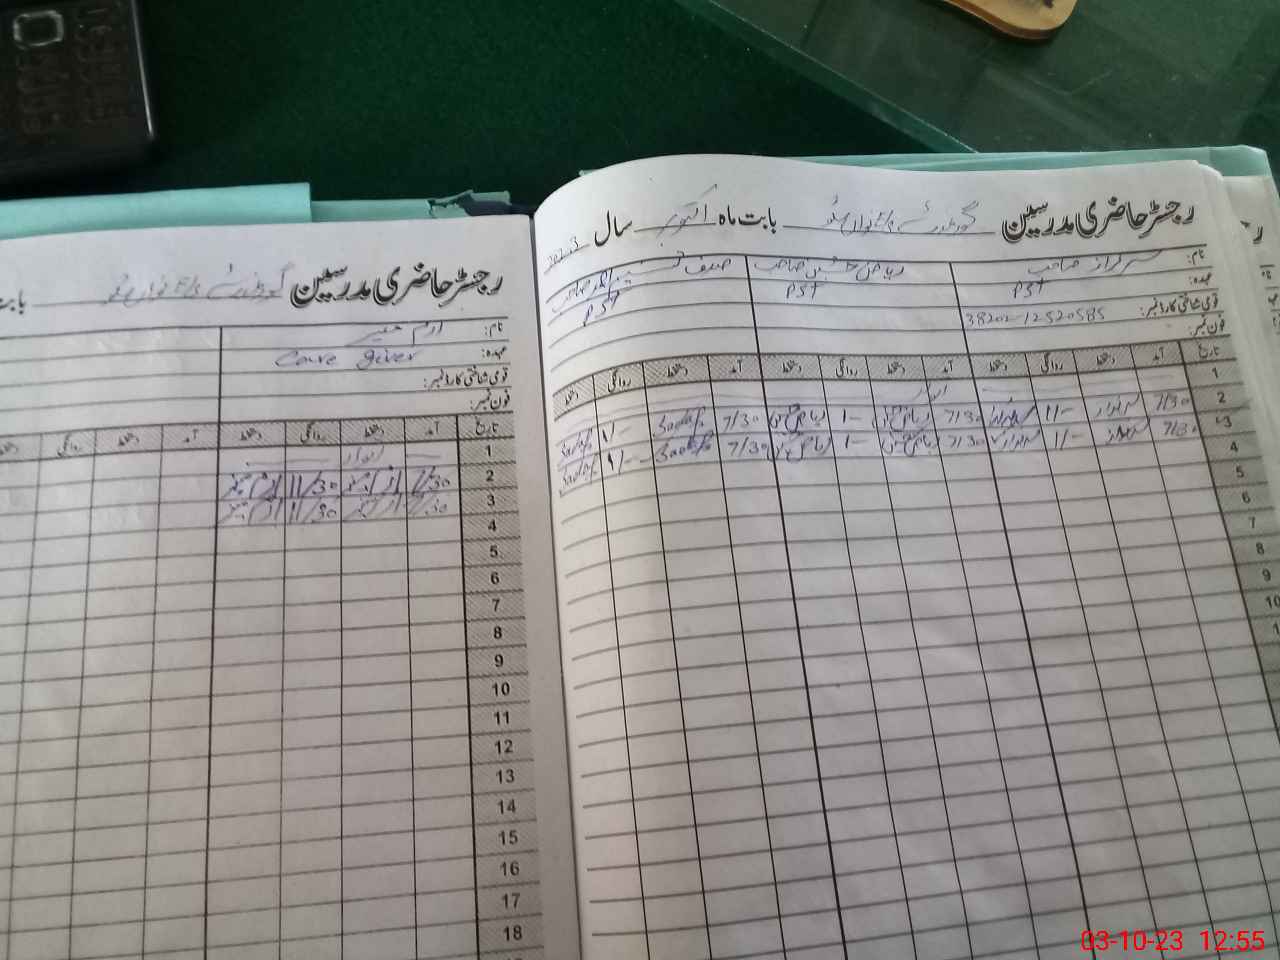 رجسٹر حاضری مدرسین بابت ماہ اکتوبر سال 2023
نام: سرفراز صاحب ریاض حسین صاحب صدف
عہدہ: PST PST PST
قومی شناختی کارڈ نمبر: 38202-12520585
فون نمبر:
تاریخ آمد دستخط روانگی دستخط آمد دستخط روانگی دستخط آمد دستخط روانگی دستخط
1 اتوار
2 7/30 سرفراز 11/- سرفراز 7/30 ریاض حسین 1/- ریاض حسین 7/30 Sadaf 1/- Sadaf
3 7/30 سرفراز 1/- سرفراز 7/30 ریاض حسین 1/- ریاض حسین 7/30 Sadaf 1/- Sadaf
4
5
6
7
8
9
10
رجسٹر حاضری مدرسین
بابت
نام: ارم
عہدہ: Care giver
قومی شناختی کارڈ نمبر:
فون نمبر:
تاریخ آمد دستخط روانگی دستخط آمد دستخط روانگی
1 اتوار
2 7/30 ارم 11/30 ارم
3 7/30 ارم 11/30 ارم
4
5
6
7
8
9
10
11
12
13
14
15
16
17
18
03-10-23 12:55